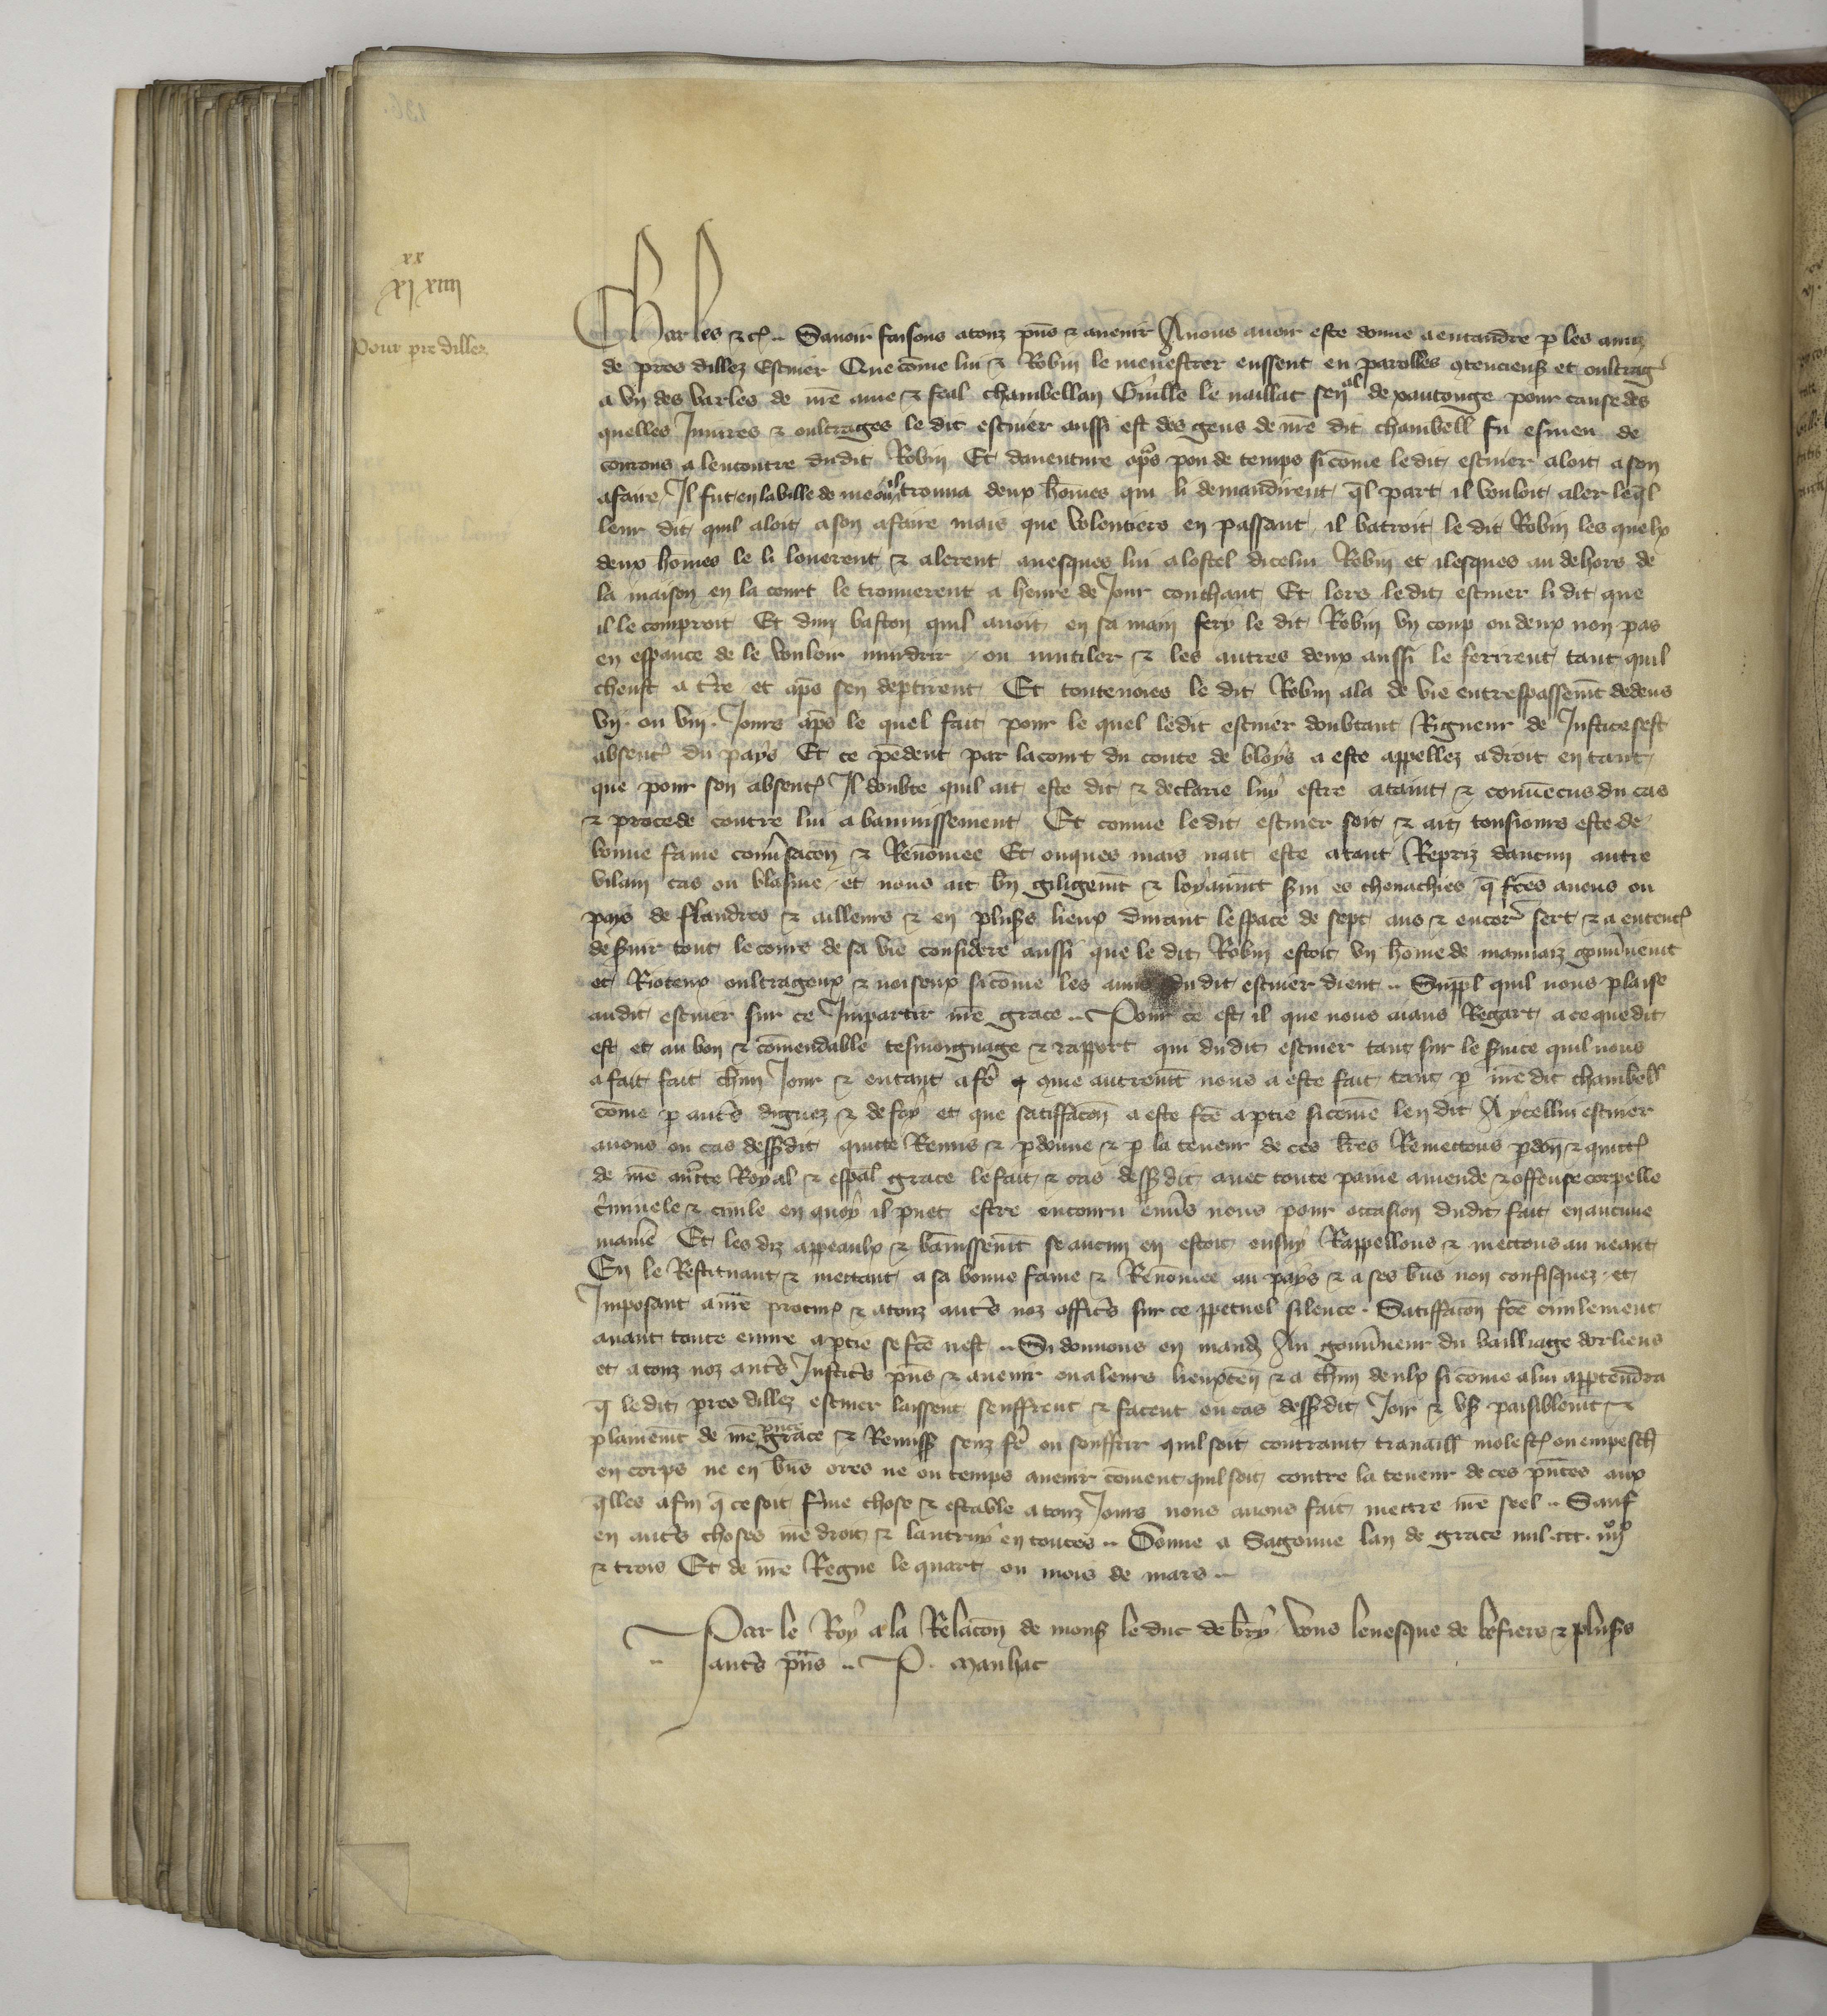 xx
xj xiiij
Pour pre dillez
Charles &c̃ .. Sauoir faisons a touz pñs & auenir A nous auoir este donne a entandre p les amiz
de pres dillez Escuier Que cõme lui & Robin le menestrer eussent eu parolles ꝯtencieus et oultrag̾
a vn des varles de nr̃e ame & feal chambellan Guille le naillac sen̾al de xantonge pour cause des
quelles Iniures & oultrages le dit escuier aussi est des gens de nr̃e dit chambell̾ fu esmeu de
courous a lencontre dudit Robin Et dauenture ap̃s pou de temps si cõme le dit escuier aloit a son
afaire Il fut en la ville de meun il trouua deux hõmes qui li demandirent q̃l part il vouloit aler leq̃l
leur dit quil aloit a son afaire mais que volentiers en passant il batroit le dit Robin les quelx
deux hõmes le li louerent & alerent auesques lui a lostel dicelui Robin et ilesques au dehors de
la maison en la court le trouuerent a heure de Iour couchant Et lors le dit escuier li dit que
il le comproit Et dun baston quil auoit en sa main fery le dit Robin vn coup ou deux non pas
en espance de le vouloir murdrir ou mutiler & les autres deux aussi le ferirent tant quil
cheust a t̾re et ap̃s sen deptirent Et toutenoies le dit Robin ala de vie en trespassem̃t dedens
vij. ou viij. Iours ap̃s le quel fait pour le quel le dit escuier doubtant Rigueur de Iustice sest
absent̾ du pays Et ce pẽdent par la court du conte de bloys a este appellez a droit en tant
que pour son absent̾ Il doubte quil ait este dit & declarie luy estre ataint & conuẽcus du cas
& procede contre lui a bannissement Et comme le dit escuier soit & ait tousiours este de
bonne fame conu̾sacõn & Renõmee Et onques mais nait este atant Repriz daucun autre
vilain cas ou blasme et nous ait bñ giligem̃t & loyaum̃t s̾ui es cheuachies q̃ fc̃es auons ou
pays de flandres & ailleurs & en plus̾s lieux durant lespace de sept ans & encor̾ sert & a entent̾
de s̾uir tout le cours de sa vie considere aussi que le dit Robin estoit vn hõme de mauuaiz gouu̾nem̃t
et Rioteux oultrageux & noiseux si cõme les amis du dit escuier dient .. Suppl̾ quil nous plaise
audit escuier sur ce Impartir nr̃e grace .. Pour ce est il que nous aians Regart a ce que dit
est et au bon & cõmendable tesmoingnage & rapport qui dudit escuier tant sur le s̾uice quil nous
a fait fait chũn Iour & entant a fẽ que autrem̃t nous a este fait tant p nr̃e dit chambell̾
cõme p aut̾s dignez & de foy et que satiffacõn a este fc̃e a ptie si cõme len dit A ycellui escuier
auons ou cas dess̾dit quicte Remis & pdonne & p la teneur de ces lr̃es Remettons pdõn & quict̾
de nr̃e auct̾te Royal & esp̃al grace le fait & cas dess̾dit auec toute paine amende & offense corpelle
c̾minele & ciuile en quoy il puet estre encouru enu̾s nous pour occasion dudit fait en aucune
manie̾ Et les diz appeaulx & bãnissem̃t se aucun en estoit ensuy Rappellons & mettons au neant
En le Restituant & mettant a sa bonne fame & Renõmee au pays & a ses bñs non confisquez et
Imposant a nr̃e procur̾ & a touz aut̾s noz offici̾s sur ce ppetuel silence . Satiffacõn fc̃e ciuilement
auant toute euure a ptie se fc̃e nest .. Si donnons en mand̾ Au gouu̾neur du bailliage dorliens
et a touz noz aut̾s Iustici̾s pñs & auenir ou a leurs lieuxteñ & a chũn deulx si cõme a lui apptendra
q̃ le dit pres dillez escuier laissent seuffrent & facent ou cas dess̾dit Ioir & vs̾ paisiblem̃t &
plainem̃t de nr̃e pñte grace & Remiss̾ senz fẽ ou souffrir quil soit contraint trauaill̾ molest̾ ou empesch̾
en corps ne en bñs ores ne ou temps auenir cõment quil soit contre la teneur de ces pñtes aux
q̃lles afin q̃ ce soit f̾me chose & estable a touz Iours nous auons fait mettre nr̃e seel .. Sauf
en aut̾s choses nr̃e droit & lautruy en toutes .. Donne a Sagonne lan de grace mil .ccc. iiijxx
& trois Et de nr̃e Regne le quart ou mois de mars ..
Par le Roy a la Relacõn de mons̾ le duc de b̾ry vous leuesque de b̾siers & plus̾s
aut̾s pñs .. P. Manhac